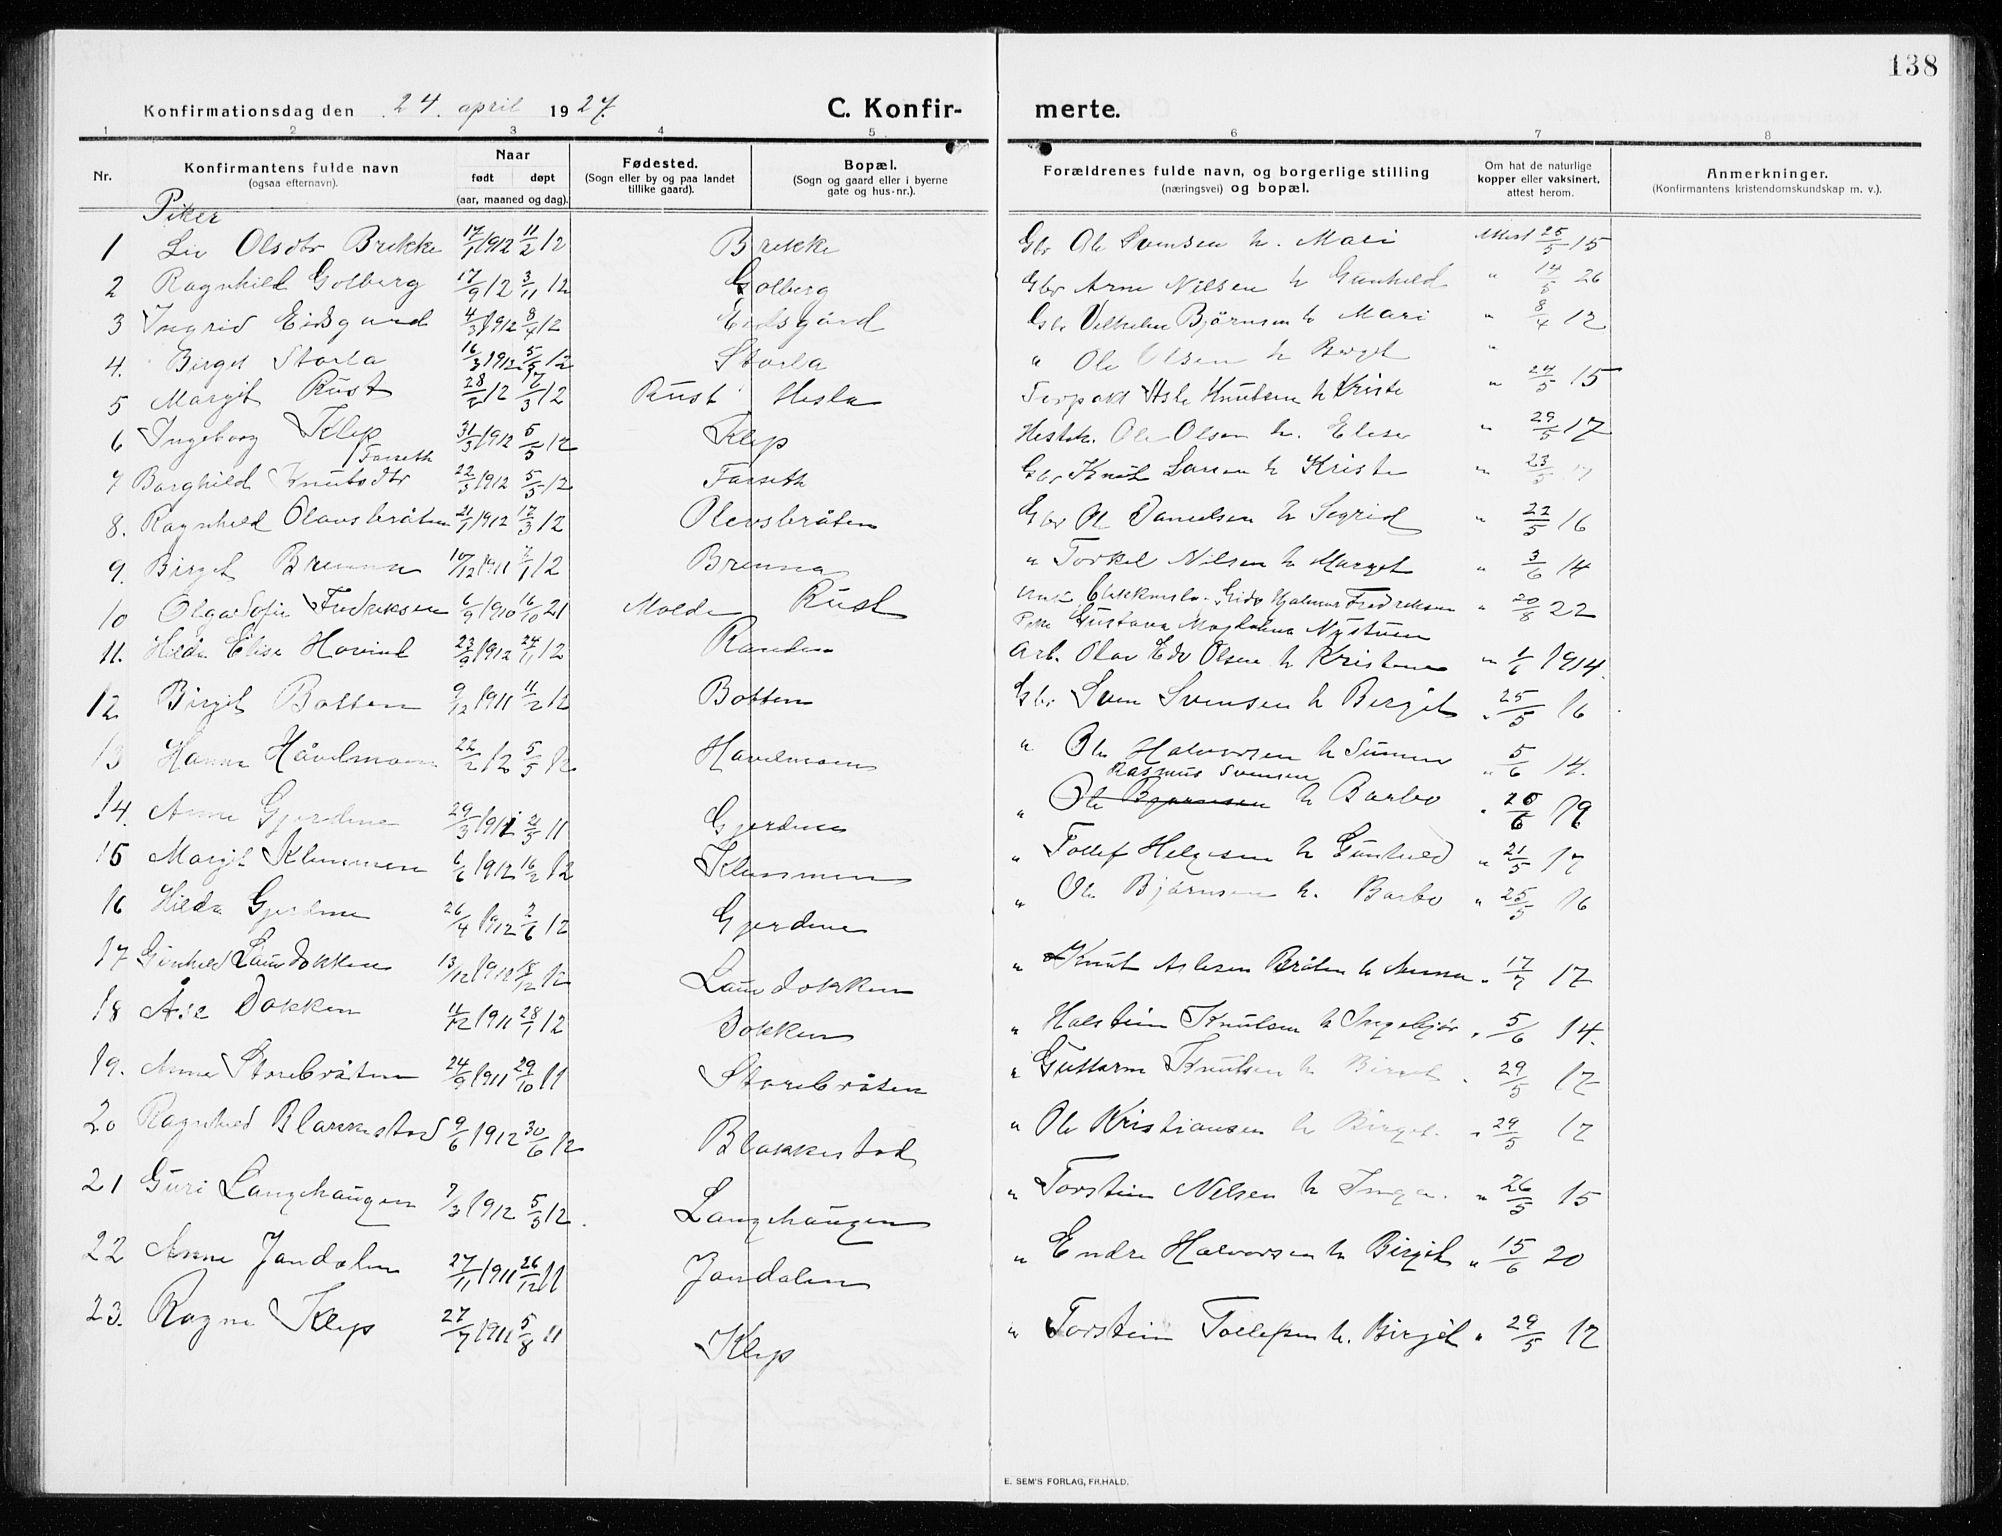 138
Konfirmationsdag den 24. april 1927.
C. Konfir-merte.
1 2 3 4 5 6 7 8
Nr.
Konfirmantens fulde navn (ogsaa efternavn).
Naar født døpt (aar, maaned og dag).
Fødested. (Sogn eller by og paa landet tillike gaard).
Bopæl. (Sogn og gaard eller i byerne gate og hus-nr.).
Forældrenes fulde navn, og borgerlige stilling (næringsvei) og bopæl.
Om hat de naturlige kopper eller vaksinert, attest herom.
Anmerkninger. (Konfirmantens kristendomskundskap m. v.).
Piker
1 Liv Olsdtr Brekke 17/1 1912 11/2 12 Brekke Gbr Ole Svensen h. Mari Attest 25/5 15
2 Ragnhild Golberg 17/9 12 3/11 12 Golberg Gbr Arne Nilsen h Gunhild " 14/5 26
3 Ingrid Eidsgaard 4/3 1912 8/4 12 Eidsgård Gbr Vilhelm Bjørnsen h Mari " 8/4 12
4. Birget Storla 16/3 1912 5/5 12 Storla " Ole Olsen h Berget "
5 Margit Rust 12 17/3 12 Rust Hesla Asle Knutsen h Kristi " 24/5 15
6 Ingeborg Klep 31/3 1912 5/5 12 Klep Ole Olsen h. Elise " 29/5 17
7 Borghild Knutsdtr Farseth 22/3 1912 5/5 12 Farseth Gbr Knut Larsen h Kristi " 23/5
8. Ragnhild Olavsbråten 21/1 1912 17/3 12 Olevsbråten Gbr Ole Danielsen h Sigrid " 22/5 16
9. Birget Brenna 10/12 1911 7/1 12 Brenna " Torkel Nilsen h Marget " 3/6 14
10 Olga Sofie Fredriksen 6/9 1910 16/10 21 Molde Rust Hjalmar Fredriksen " 20/8 22
Gustava Magdalena Nystuen
11. Hilda Elise Hovind 23/9 1912 24/11 12 Randen Arb. Olav Edv Olsen h Kristine " 1/6 1914.
12 Birgit Botten 9/12 1911 11/2 12 Botten Gbr Sven Svensen h Bergit " 25/5 16
13 Hanna Håvelmoen 22/2 12 5/5 12 Havelmoen " Ole Halvorsen h Sunniv " 5/6 14.
Rasmus Svensen
14. Anne Gjerdene 29/3 1911 21/5 11 Gjerdene " Ole Bjørnsen h Barbo " 26/6 19
15 Margit Klemmen 6/1 1912 16/2 12 Klemmen " Tollef Helgesen h Gunhild " 21/5 17
16 Hilda Gjerdene 26/4 1912 2/6 12 Gjerdene " Ole Bjørnsen h. Barbo " 25/5 16
17 Gunhild Laurdokken Laurdokken " Knut Aslesen Bråten h Anna " 17/7 17
18 Åse Dokken 1911 28/1 12 Dokken " Halstein Knutsen h Ingebjør " 5/6 14.
19. Anne Storebråten 24/9 1911 29/10 11 Storebråten " Guttorm Knutsen h Birget " 29/5 17
20 Ragnhild Blakkestad 9/6 1912 30/6 12 Blakkestad " Ole Kristiansen h Birget. " 29/5 17
21 Guri Langehaugen 7/3 1912 5/5 12. Langehaugen " Torstein Nilsen h Inga. " 26/5 15
22 Anne Jondalen 27/11 1911 26/12 11 Jondalen " Endre Halvorsen h Birgit " 15/6 20
23. Ragne Klep 27/7 1911 5/8 11 Klep " Torstein Tollefsen h. Birgit " 29/5 17
E. SEM'S FORLAG, FR.HALD.